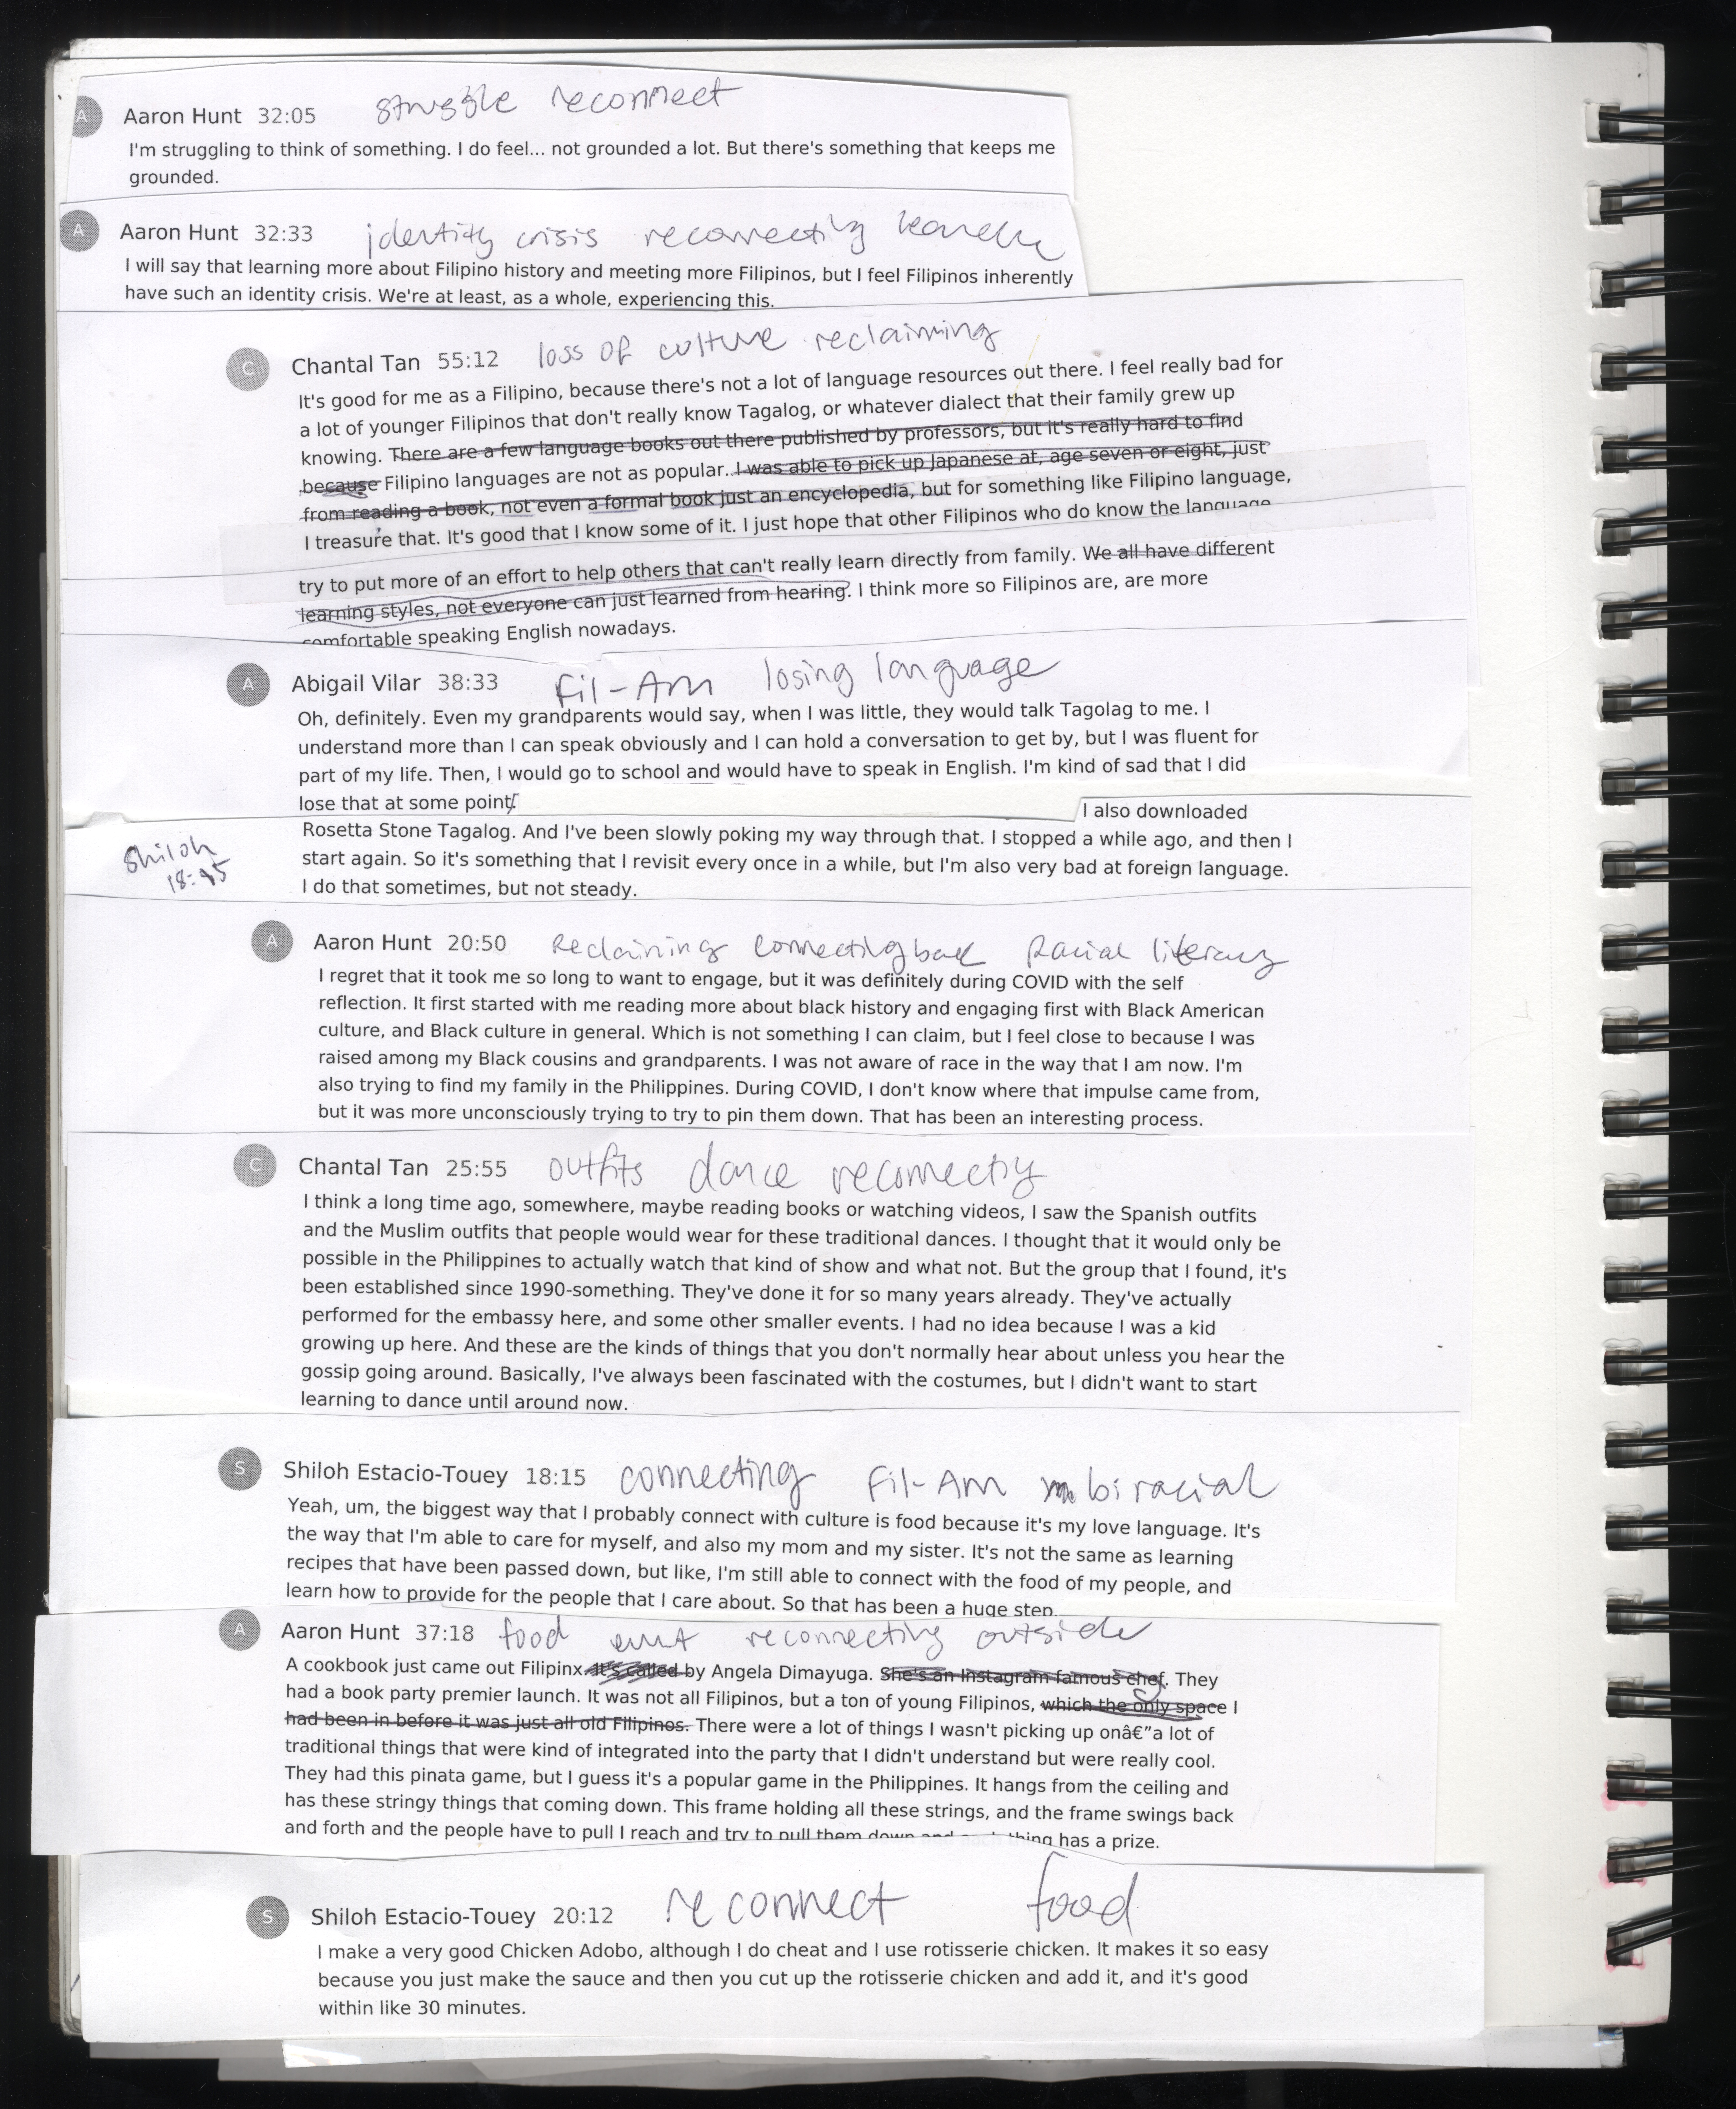 A Aaron Hunt 32:05 struggle reconnect
I'm struggling to think of something. I do feel... not grounded a lot. But there's something that keeps me
grounded.
A Aaron Hunt 32:33 identity crisis reconnecting
I will say that learning more about Filipino history and meeting more Filipinos, but I feel Filipinos inherently
have such an identity crisis. We're at least, as a whole, experiencing this.
C Chantal Tan 55:12 loss of culture reclaiming
It's good for me as a Filipino, because there's not a lot of language resources out there. I feel really bad for
a lot of younger Filipinos that don't really know Tagalog, or whatever dialect that their family grew up
knowing. There are a few language books out there published by professors, but it's really hard to find
because Filipino languages are not as popular. I was able to pick up Japanese at, age seven or eight, just
from reading a book, not even a formal book just an encyclopedia, but for something like Filipino language,
I treasure that. It's good that I know some of it. I just hope that other Filipinos who do know the language
try to put more of an effort to help others that can't really learn directly from family. We all have different
learning styles, not everyone can just learned from hearing. I think more so Filipinos are, are more
comfortable speaking English nowadays.
A Abigail Vilar 38:33 Fil-Am losing language
Oh, definitely. Even my grandparents would say, when I was little, they would talk Tagolag to me. I
understand more than I can speak obviously and I can hold a conversation to get by, but I was fluent for
part of my life. Then, I would go to school and would have to speak in English. I'm kind of sad that I did
lose that at some point.
I also downloaded
Rosetta Stone Tagalog. And I've been slowly poking my way through that. I stopped a while ago, and then I
start again. So it's something that I revisit every once in a while, but I'm also very bad at foreign language.
I do that sometimes, but not steady.
Shiloh
A Aaron Hunt 20:50 Reclaiming connecting back Racial literacy
I regret that it took me so long to want to engage, but it was definitely during COVID with the self
reflection. It first started with me reading more about black history and engaging first with Black American
culture, and Black culture in general. Which is not something I can claim, but I feel close to because I was
raised among my Black cousins and grandparents. I was not aware of race in the way that I am now. I'm
also trying to find my family in the Philippines. During COVID, I don't know where that impulse came from,
but it was more unconsciously trying to try to pin them down. That has been an interesting process.
C Chantal Tan 25:55 outfits dance reconnecting
I think a long time ago, somewhere, maybe reading books or watching videos, I saw the Spanish outfits
and the Muslim outfits that people would wear for these traditional dances. I thought that it would only be
possible in the Philippines to actually watch that kind of show and what not. But the group that I found, it's
been established since 1990-something. They've done it for so many years already. They've actually
performed for the embassy here, and some other smaller events. I had no idea because I was a kid
growing up here. And these are the kinds of things that you don't normally hear about unless you hear the
gossip going around. Basically, I've always been fascinated with the costumes, but I didn't want to start
learning to dance until around now.
S Shiloh Estacio-Touey 18:15 connecting Fil-Am biracial
Yeah, um, the biggest way that I probably connect with culture is food because it's my love language. It's
the way that I'm able to care for myself, and also my mom and my sister. It's not the same as learning
recipes that have been passed down, but like, I'm still able to connect with the food of my people, and
learn how to provide for the people that I care about. So that has been a huge step.
A Aaron Hunt 37:18 food reconnecting outside
A cookbook just came out Filipinx. It's called by Angela Dimayuga. She's an Instagram famous chef. They
had a book party premier launch. It was not all Filipinos, but a ton of young Filipinos, which the only space I
had been in before it was just all old Filipinos. There were a lot of things I wasn't picking up onâ€”a lot of
traditional things that were kind of integrated into the party that I didn't understand but were really cool.
They had this pinata game, but I guess it's a popular game in the Philippines. It hangs from the ceiling and
has these stringy things that coming down. This frame holding all these strings, and the frame swings back
and forth and the people have to pull I reach and try to pull them down and each thing has a prize.
S Shiloh Estacio-Touey 20:12 reconnect food
I make a very good Chicken Adobo, although I do cheat and I use rotisserie chicken. It makes it so easy
because you just make the sauce and then you cut up the rotisserie chicken and add it, and it's good
within like 30 minutes.